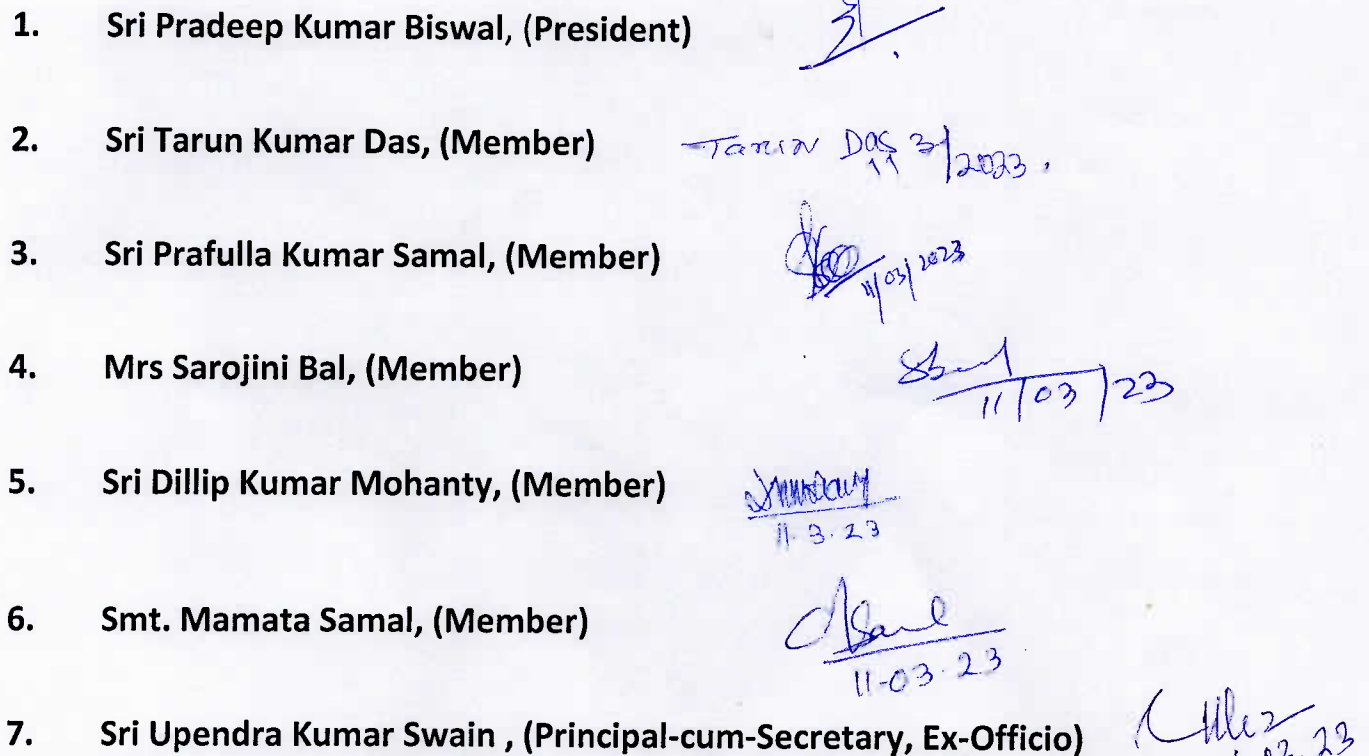 1. Sri Pradeep Kumar Biswal, (President)
2. Sri Tarun Kumar Das, (Member) Tarun Das 11/3/2023.
3. Sri Prafulla Kumar Samal, (Member) 11/03/2023
4. Mrs Sarojini Bal, (Member) SBal 11/03/23
5. Sri Dillip Kumar Mohanty, (Member) 11.3.23
6. Smt. Mamata Samal, (Member) 11-03-23
7. Sri Upendra Kumar Swain , (Principal-cum-Secretary, Ex-Officio)